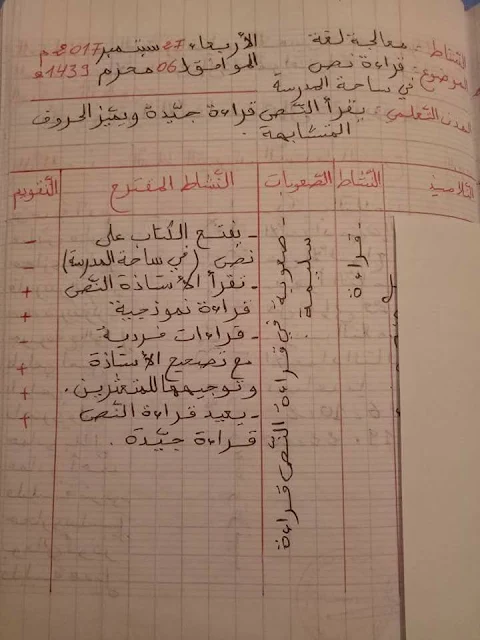 النشاط: معالجة لغة الأربعاء 27 سبتمبر 2017 م
الموضوع: قراءة نص الموافق ل 06 محرم 1439 ه
في ساحة المدرسة
الهدف التعلمي: يقرأ النّص قراءة جيّدة ويميّز الحروف
المتشابهة.
التلاميذ النّشاط الصّعوبات النّشاط المقترح التّقويم
- قراءة
- صعوبة في قراءة النّص قراءة
سليمة.
- يفتح الكتاب على -
نص (في ساحة المدرسة) -
- تقرأ الأستاذة النّص +
قراءة نموذجية +
- قراءات فردية -
مع تصحيح الأستاذة +
وتوجيهها للمتعثرين. +
- يعيد قراءة النّص +
قراءة جيّدة.